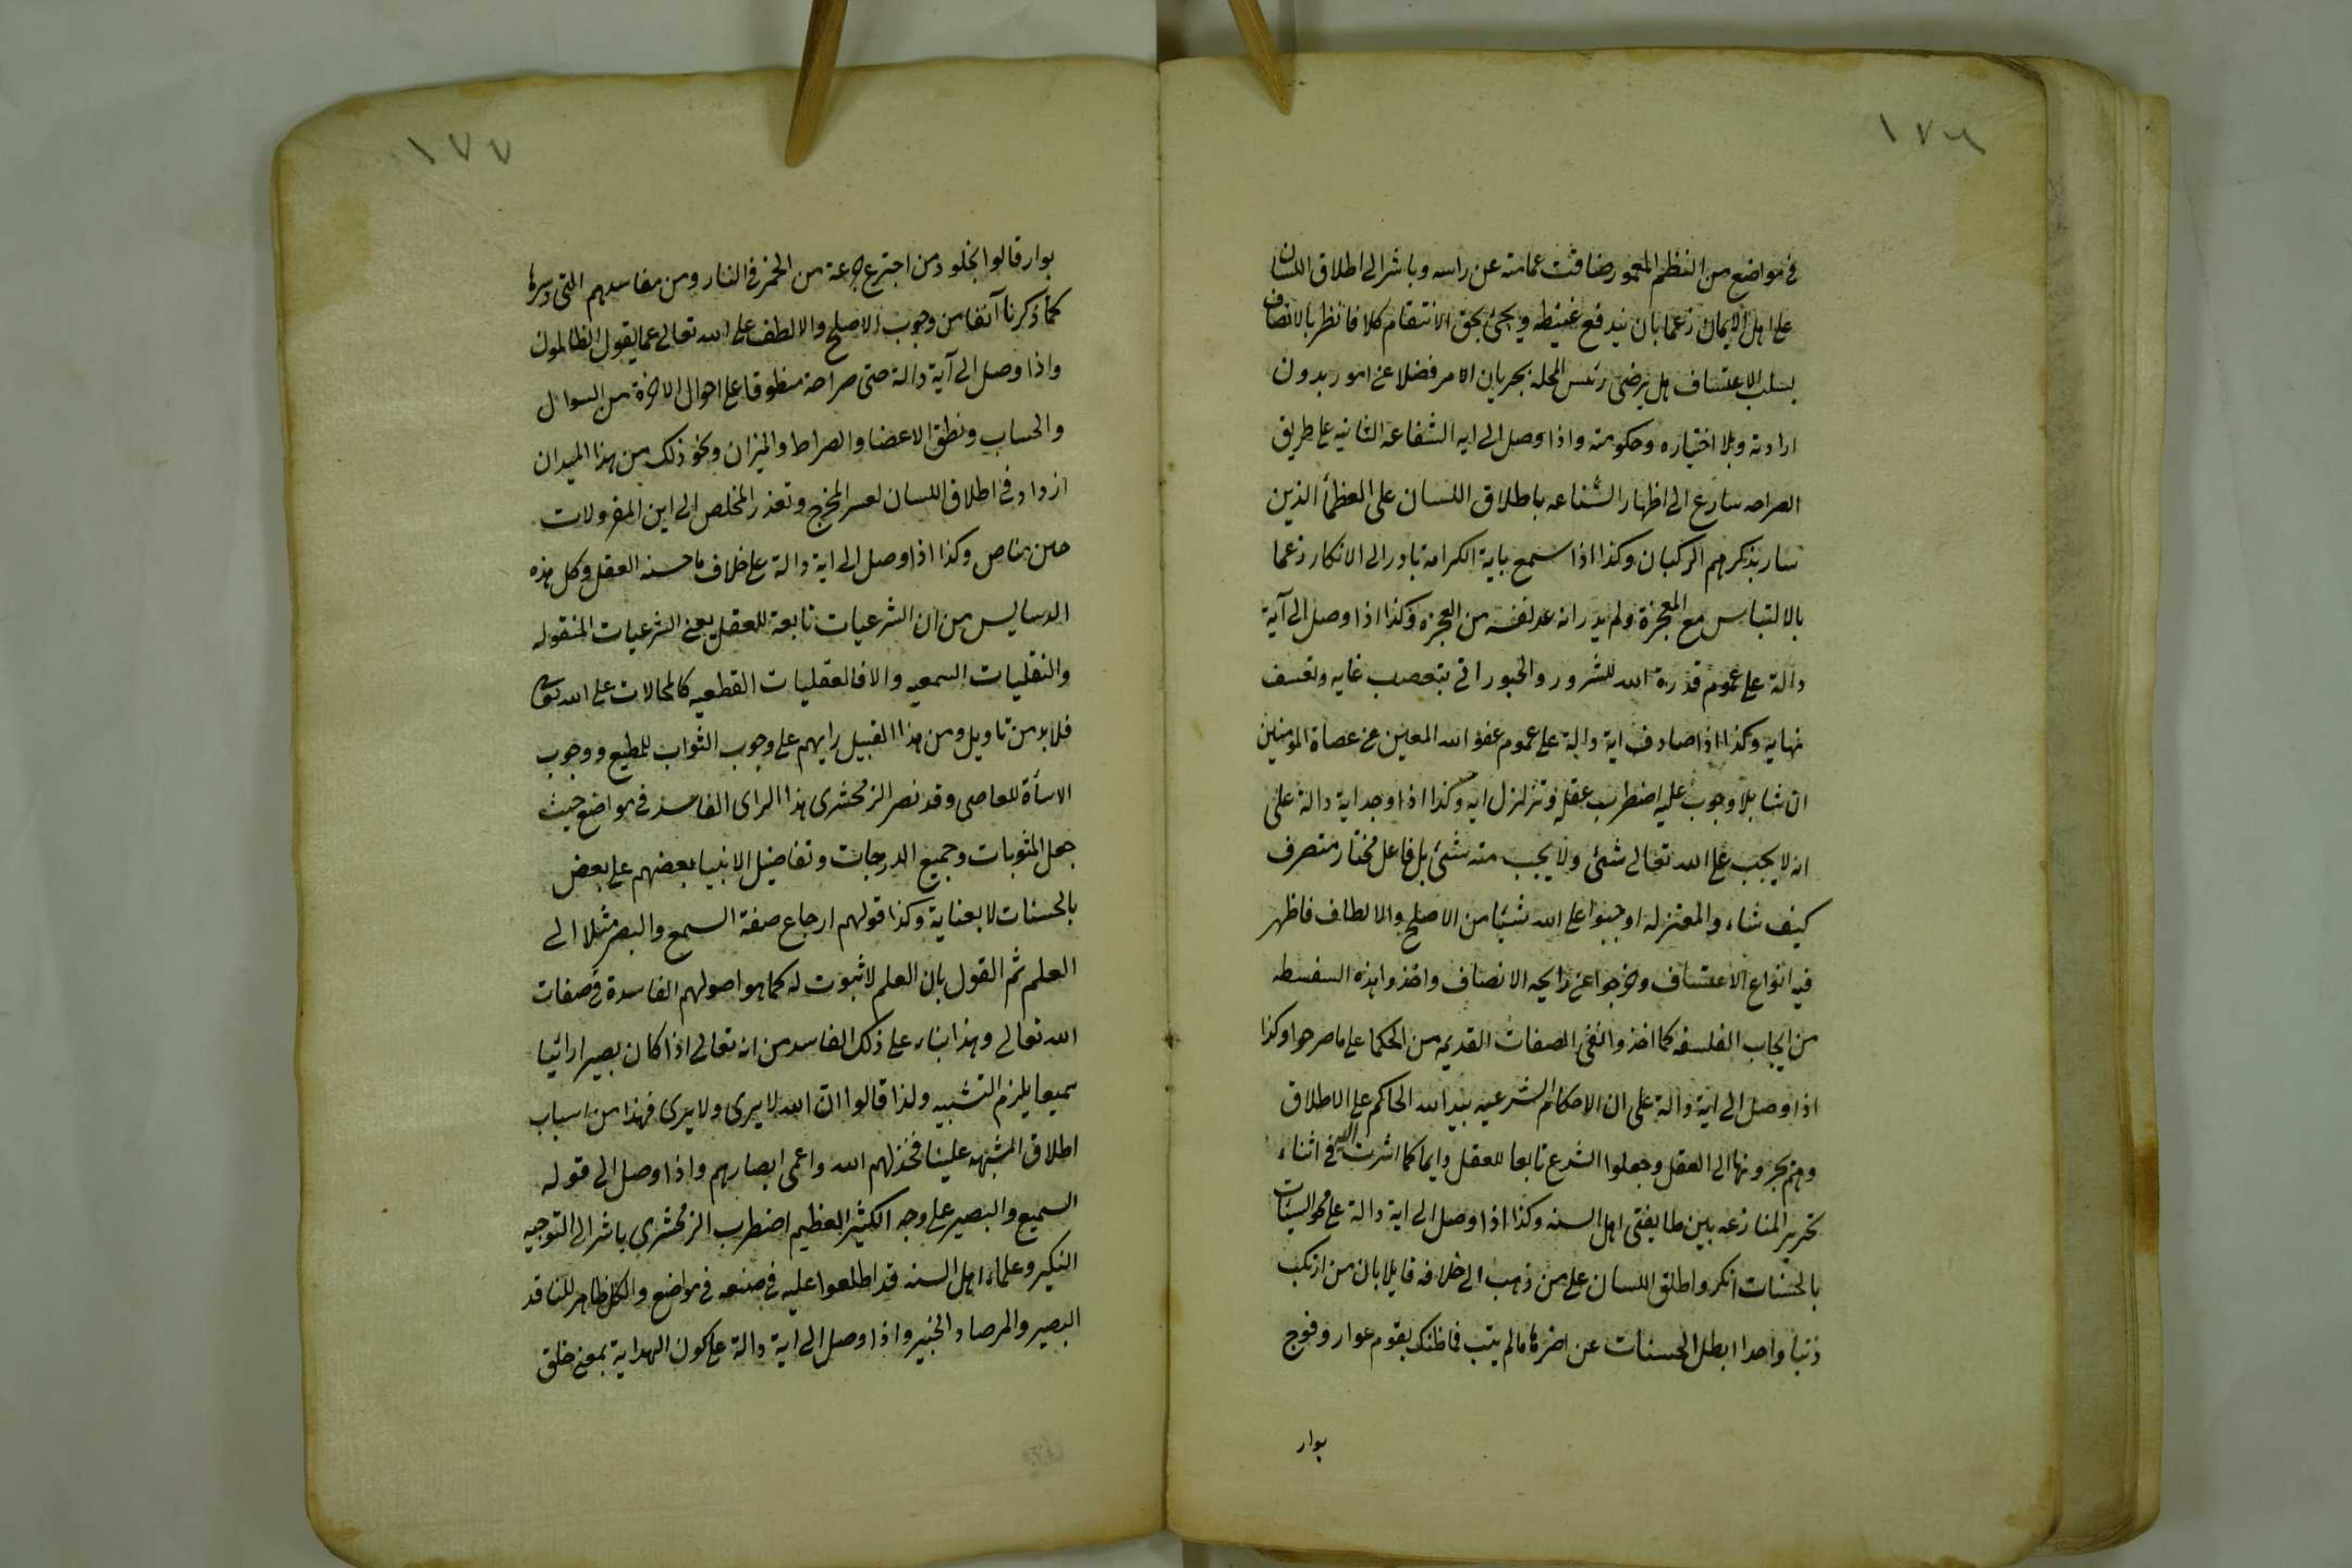 ١٧٦
في مواضع من النظم المعمور ضاقت عمامته عن راسه وباشر الى اطلاق اللسان
على اهل الايمان زعما بان يندفع غيظه ويجئ بحق الانتقام كلا فانظر بالانصاف
بسلب الاعتساف هل يرضى رئيس المحلة بجريان الامر فضلا عن امور بدون
ارادته وبلا اختياره وحكومته واذا وصل الى ايه الشفاعه الثانيه على طريق
الصراحه سارع الى اظهار الشناعه باطلاق اللسان على العظمأ الذين
سار بذكرهم الركبان وكذا اذا سمع باية الكرامة بادر الى الانكار زعما
بالالتباس مع المعجزة ولم يدر انه عد نفسه من العجزه وكذا اذا وصل الى آية
دالة على عموم قدرة الله للشرور والخيور اتى بتعصب غايه وتعسف
نهايه وكذا اذا صادف اية دالة على عموم عفو الله المعين عن عصاة المومنين
ان شا بلا وجوب عليه اضطرب عقله وتزلزل ايه وكذا اذا وجد اية دالة على
انه لا يجب على الله تعالى شئ ولا يجب منه شئ بل فاعل مختار متصرف
كيف شاء والمعتزله اوجبوا على الله شيئا من الاصلح والالطاف فاظهر
فيه انواع الاعتساف وخرجوا عن رايحه الانصاف واخذوا هذه السفسطه
من ايجاب الفلسفه كما اخذوا نفى الصفات القديمه من الحكما على ما صرحوا وكذا
اذا وصل الى اية دالة على ان الاحكام الشرعيه بيد الله الحاكم على الاطلاق
وهم يجرونها الى العقل وجعلوا الشرع تابعا للعقل دايما كما اشرت اليه في اثناء
تحرير المنازعه بين طايفتى اهل السنه وكذا اذا وصل الى اية دالة على محو السيئات
بالحسنات انكر واطلق اللسان على من ذهب الى خلافه قايلا بان من ارتكب
ذنبا واحدا ابطل الحسنات عن اخرها ما لم يتب فما ظنك بقوم عوار وفوج
بوار
١٧٧
بوار قالوا بخلود من اجترع جرعة من الخمر في النار ومن مفاسدهم التى دسوها
كما ذكرنا آنفا من وجوب الاصلح والالطف على الله تعالى عما يقول الظالمون
واذا وصل الى آية دالة حتى صراحة منطوقا على احوال الاخرة من السوال
والحساب ونطق الاعضا والصراط والميزان ونحو ذلك من هذا الميدان
ازداد في اطلاق اللسان لعسر المخرج وتعذر المخلص الى اين المفر ولات
حين مناص وكذا اذا وصل الى اية دالة على خلاف ما حسنه العقل وكل هذه
الدسايس من ان الشرعيات تابعة للعقل يعنى الشرعيات المنقوله
والنقليات السمعيه والا فالعقليات القطعيه كالمحالات على الله تعالى
فلا بد من تاويل ومن هذا القبيل رايهم على وجوب الثواب للمطيع ووجوب
الاسأة للعاصى وقد نصر الزمخشرى هذا الراى الفاسد في مواضع حيث
جعل المثوبات وجميع الدرجات وتفاضيل الانبيا بعضهم على بعض
بالحسنات لا بعناية وكذا قولهم ارجاع صفة السمع والبصر مثلا الى
العلم ثم القول بان العلم لا ثبوت له كما هو اصولهم الفاسدة في صفات
الله تعالى وهذا بناء على ذلك الفاسد من انه تعالى اذا كان بصيرا رائيا
سميعا يلزم التشبيه ولذا قالوا ان الله لا يرى ولا يرى فهذا من اسباب
اطلاق المشبهه علينا فخذلهم الله واعمى ابصارهم واذا وصل الى قوله
السميع والبصير على وجه الكثير العظيم اضطرب الزمخشرى باشر الى التوجيه
النكير وعلماء اهل السنه قد اطلعوا عليه في صنعه في مواضع والكل ظاهر للناقد
البصير والمرصاد الخبير واذا وصل الى اية دالة على كون الهداية بمعنى خلق